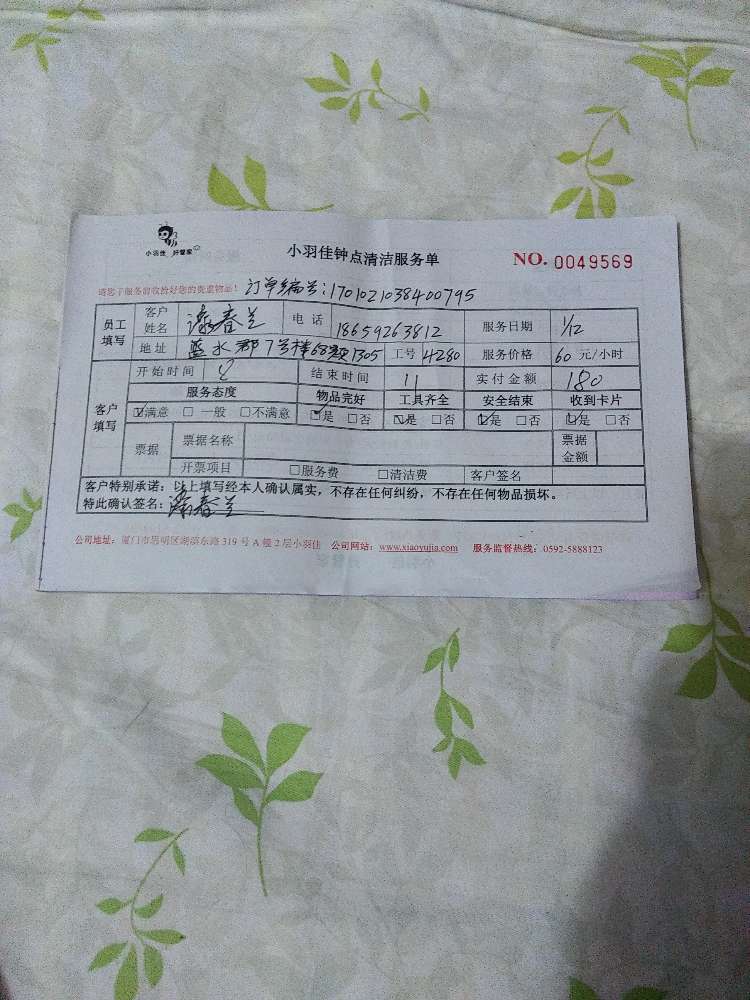 小羽佳 好管家
小羽佳钟点清洁服务单
NO. 0049569
请您于服务前收拾好您的贵重物品!
订单编号:1701021038400795
员工填写 客户姓名 春兰 电话 18659263812 服务日期 1/12
地址 蓝水郡7号楼 1305 工号 4280 服务价格 60 元/小时
客户填写 开始时间 8 结束时间 11 实付金额 180
服务态度 物品完好 工具齐全 安全结束 收到卡片
☑满意 □一般 □不满意 ☑是 □否 ☑是 □否 ☑是 □否 ☑是 □否
票据 票据名称 票据金额
开票项目 □服务费 □清洁费 客户签名
客户特别承诺:以上填写经本人确认属实,不存在任何纠纷,不存在任何物品损坏。
特此确认签名: 春兰
公司地址:厦门市思明区湖滨东路 319 号 A 幢 2 层小羽佳 公司网站:www.xiaoyujia.com 服务监督热线:0592-5888123